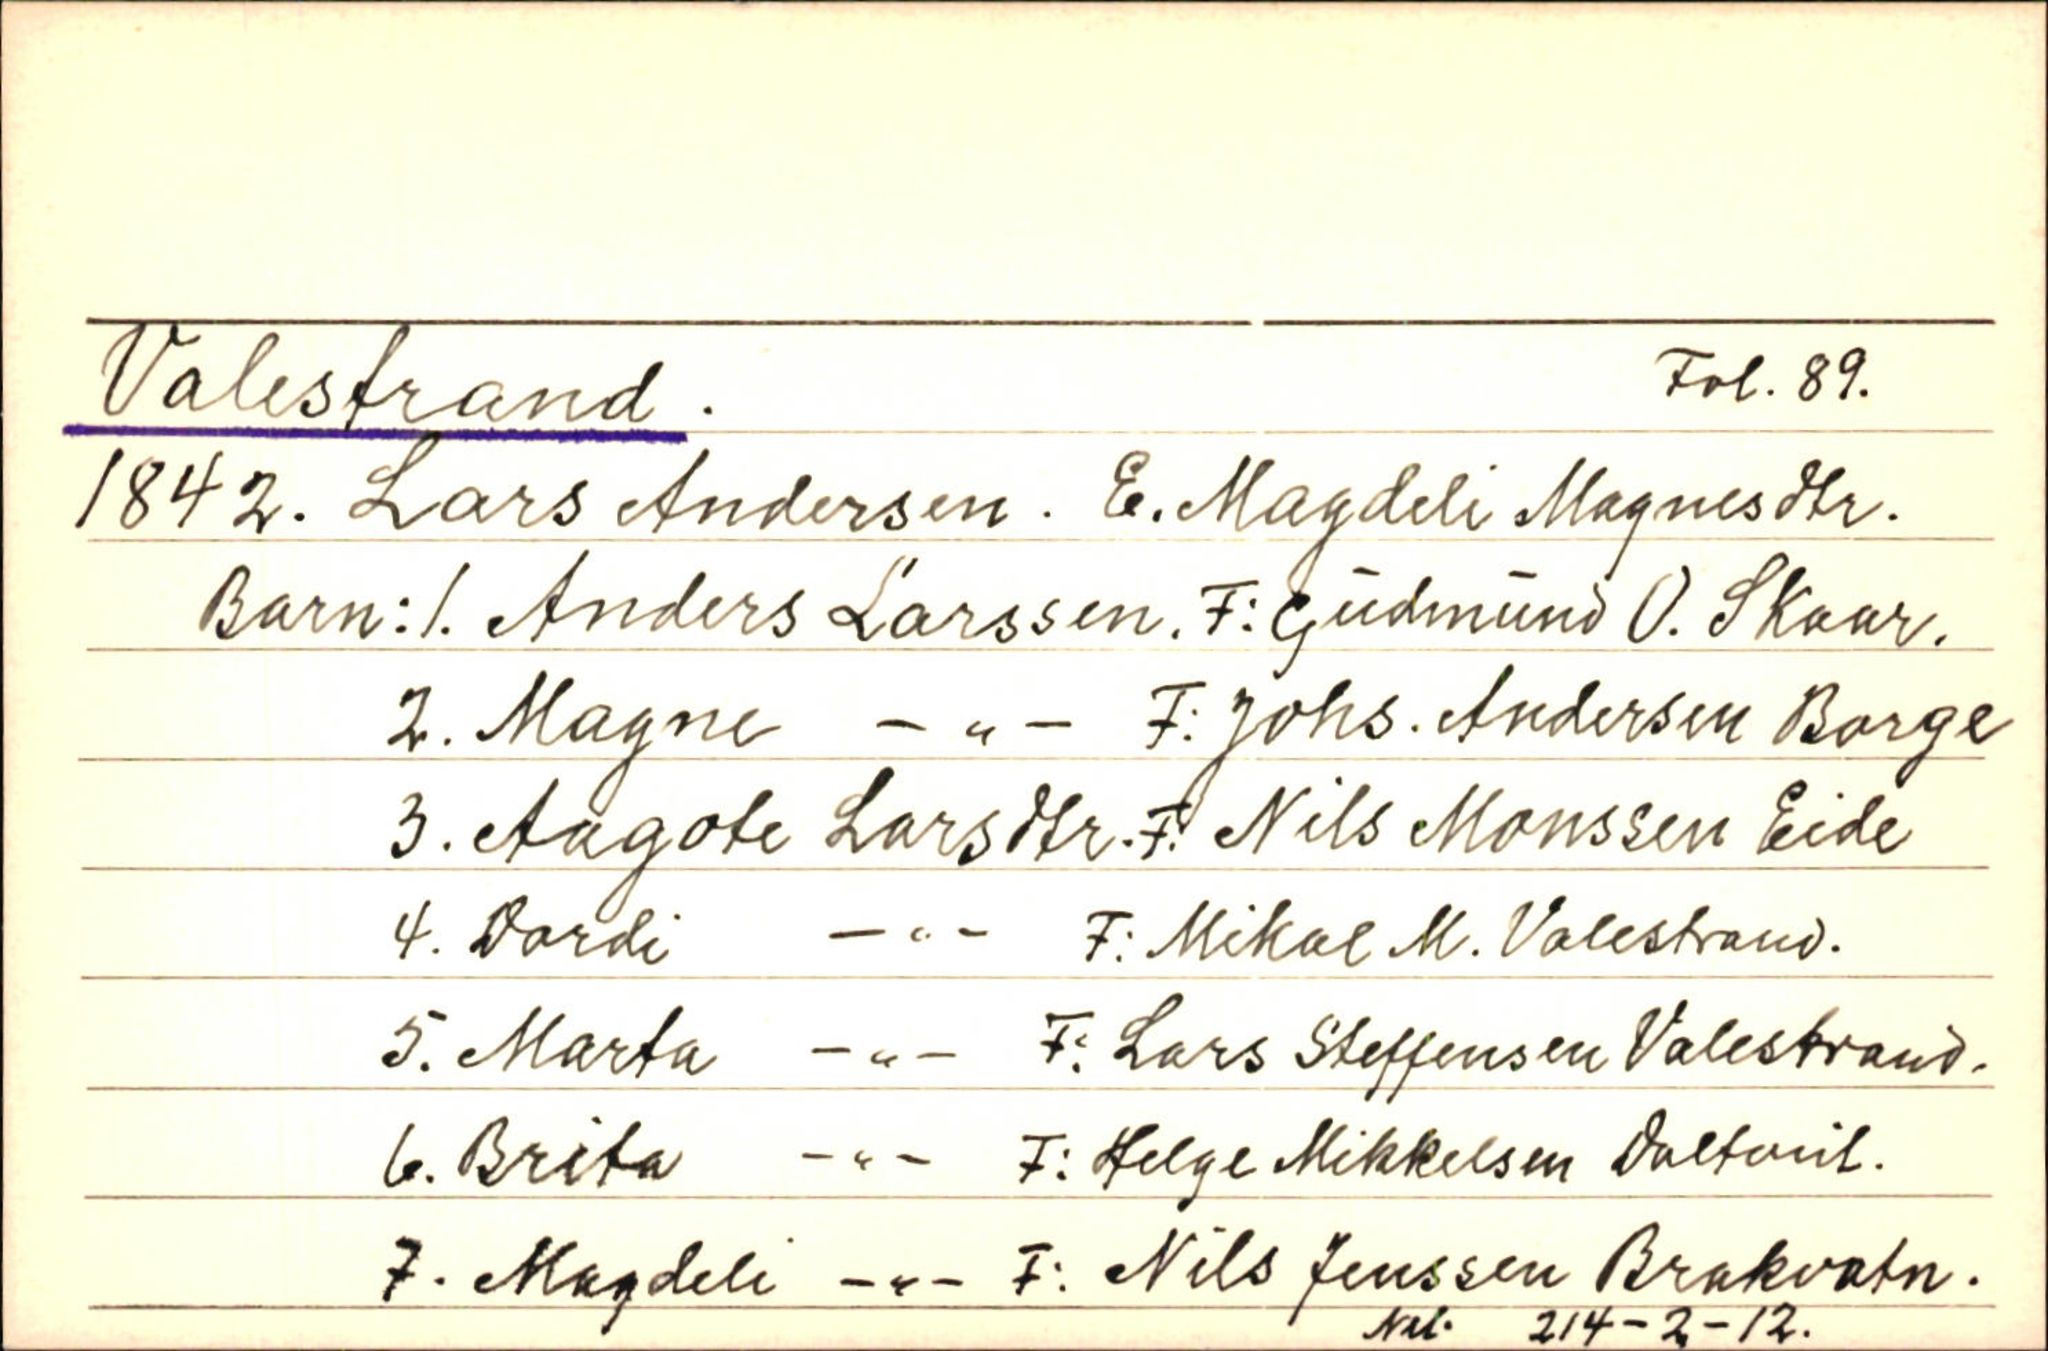 Valestrand. Fol. 89.
1842. Lars Andersen. E. Magdeli Magnesdtr.
Barn: 1. Anders Larssen. F: Gudmund O. Skaar.
2. Magne -"- F: Johs. Andersen Borge
3. Aagote Larsdtr. F: Nils Monssen Eide
4. Dordi -"- F: Mikal M. Valestrand.
5. Marta -"- F: Lars Steffensen Valestrand.
6. Brita -"- F: Helge Mikkelsen
7. Magdeli -"- F: Nils Jenssen Brakvatn.
214-2-12.